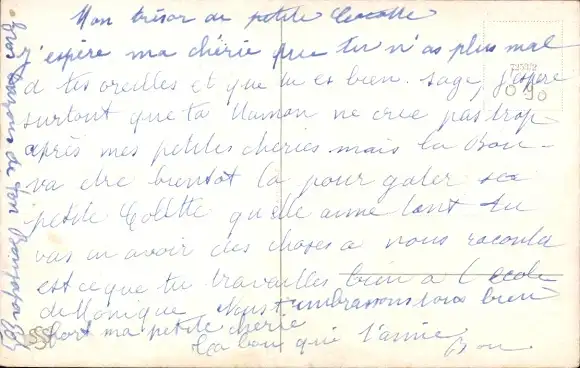 Mon trésor de petite Cocotte
j'espère ma chérie que tu n'as plus mal
a tes oreilles et que tu es bien sage, j'espère
surtout que ta Maman ne crie pas trop
après mes petites cheries mais la Bon-
va etre bientot la pour gater sa
petite Colette qu'elle aime tant tu
vas en avoir des choses a nous raconter
est ce que tu travailles bien a l'ecole
de Monique Nous t'embrassons tous bien
fort ma petite cherie
Ta bonne qui t'aime
Bon
Gros de ton Bonpapa